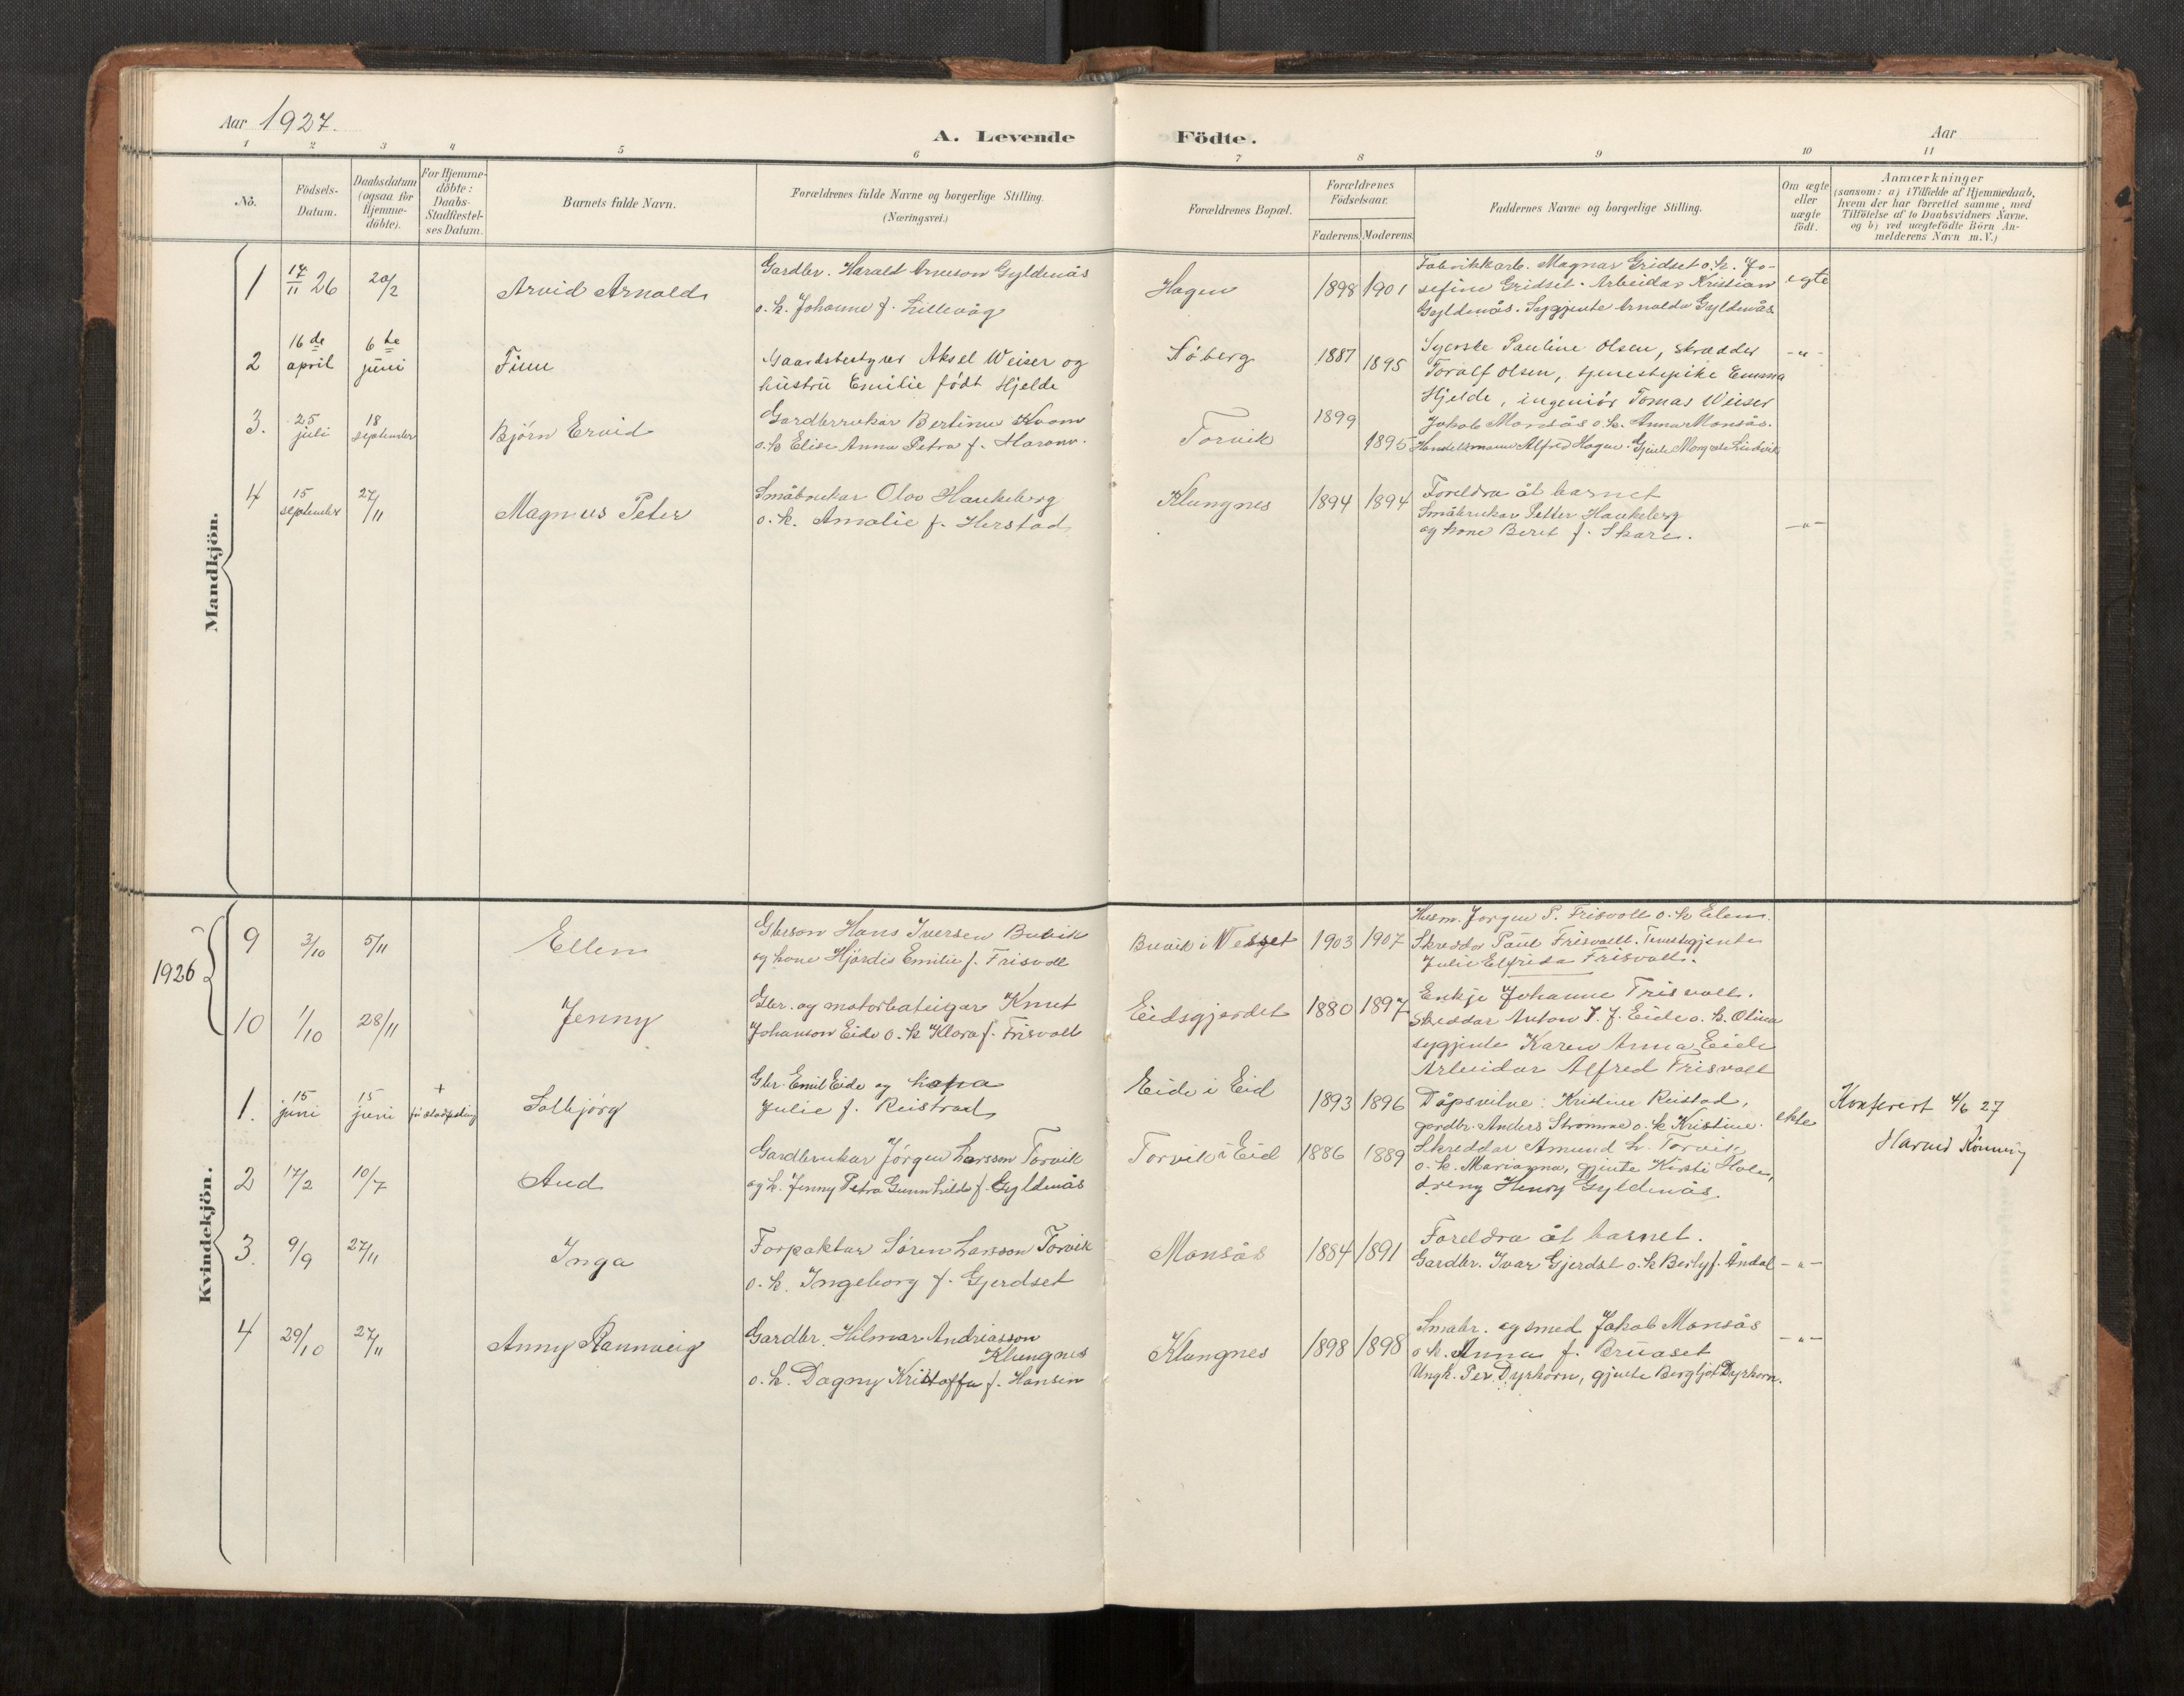 Aar 1927.
A. Levende Födte.
Aar
1 2 3 4 5 6 7 8 9 10 11
No.
Födsels-Datum.
Daabsdatum (ogsaa for Hjemme-döbte).
For Hjemme-döbte: Daabs-Stadfæstel-ses Datum.
Barnets fulde Navn.
Forældrenes fulde Navne og borgerlige Stilling.
(Næringsvei.)
Forældrenes Bopæl.
Forældrenes Födselsaar.
Faderens. Moderens.
Faddernes Navne og borgerlige Stilling.
Om ægte eller uægte födt.
Anmærkninger
(saasom: a) i Tilfælde af Hjemmedaab,
hvem der har forrettet samme, med
Tilföielse af to Daabsvidners Navne.
og b) ved uægtefödte Börn An-
melderens Navn m. V.)
Mandkjön.
1 17/11 26 20/2 Arvid Arnold
Gardbr. Harald Arneson Gyldenås
o. k. Johanne f. Lillevåg
Hagen 1898 1901
Fabrikkarb. Magnar Gridset o. k. Jo-
sefine Gridset. Arbeidar Kristian
Gyldenås. Sygjente Arnolda Gyldenås
egte
2 16de april 6te juni Finn
Gaardsbestyrer Aksel Weiser og
hustru Emilie født Hjelde
Söberg 1887 1895
Syerske Pauline Olsen, skrædder
Toralf Olsen, tjenestepike Emma
Hjelde, ingeniör Tomas Weiser
-"-
3. 25 juli 18 september Bjørn Ervid
Gardbrukar Bertinus Kvam
o. k Elise Anna Petra f.
Torvik 1899 1895
Jakob Monsås o. k. Anna Monsås.
Handelsmann Alfred Hagen. Gjente
4 15 september 27/11 Magnus Peter
Småbrukar Olav Haukeberg
o. k. Amalie f. Herstad
Klungnes 1894 1894
Foreldra åt barnet
Småbrukar Petter Haukeberg
og kone Beret f. Skare.
-"-
Kvindekjön.
1926
9 3/10 5/11 Ellen
Gbrson Hans Iversen Buvik
og kone Hjördis Emilie f. Frisvoll
Buvik i Vesset 1903 1907
Husm. Jørgen P. Frisvoll o. k Elen.
Skreddar Paul Frisvoll. Tenestgjente
Julie Elfrida Frisvoll.
10 1/10 28/11 Jenny
Gbr. og motorbateigar Knut
Johanson Eide o. k Klara f. Frisvoll
Eidsgjerdet 1880 1897
Enkje Johanne Frisvoll.
Skreddar Anton J. Eide o. k. Olina
sygjente Karen Anna Eide
Arbeidar Alfred Frisvoll
1. 15 juni 15 juni + Solbjørg
Gbr. Emil Eide og kona
Julie f. Reistad
Eide i Eid 1893 1896
Dåpsvitne: Kristine Reistad,
gardbr. Anders Strømme o. k Kristine.
ekte
Konferert 4/6 27
2 17/2 10/7 Aud
Gardbrukar Jørgen Larsson Torvik
og k. Jenny Petra Gunnhild f. Gyldenås
Torvik i Eid 1886 1889
Skreddar Amund L. Torvik
o. k. Marianna, gjente Kirsti Hole,
dreng Henry Gyldenås.
3. 9/9 27/11 Inga
Forpaktar Søren Larsson Torvik
o. k. Ingeborg f. Gjerdset
Monsås 1884 1891
Foreldra åt barnet.
Gardbr. Ivar Gjerdset o. k Berly f. Åndal
-"-
4 29/10 27/11 Anny Rannveig
Gardbr. Hilmar Andriasson
Klungnes
o. k. Dagny Kristoffa f. Hansen
Klungnes 1898 1898
Småbr. og smed Jakob Monsås
o. k. Anna f. Bruaset
Ungk. Per Dyrhorn, gjente Bergljot Dyrhorn.
-"-